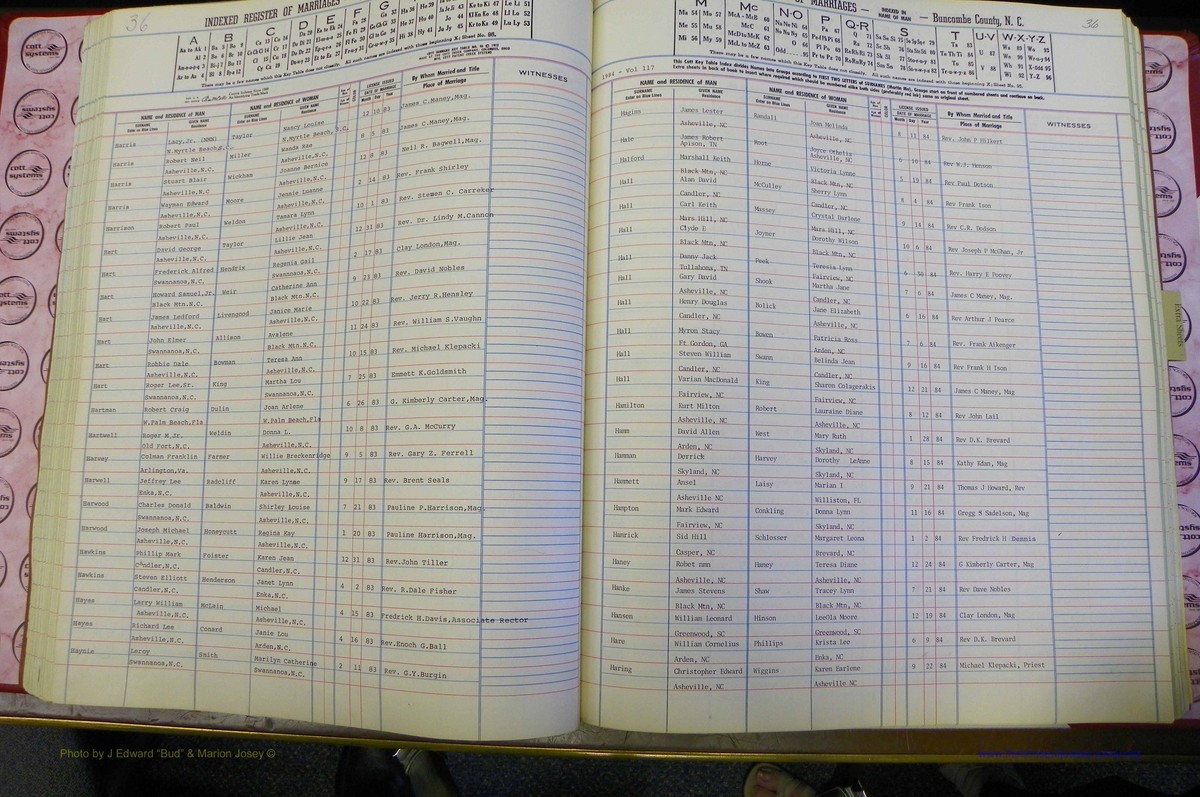 36
INDEXED REGISTER OF MARRIAGES
NAME and RESIDENCE of MAN
NAME and RESIDENCE of WOMAN
LICENSE ISSUED
DATE OF MARRIAGE
By Whom Married and Title
Place of Marriage
WITNESSES
Harris Lacy,Jr. (NMN) Taylor Nancy Louise 12 10 83 James C.Maney,Mag.
N.Myrtle Beach,S.C. N.Myrtle Beach, S.C.
Harris Robert Neil Miller Wanda Rae 8 5 83 James C.Maney,Mag.
Asheville,N.C. Asheville,N.C.
Harris Stuart Blair Wickham Joanne Bernice 12 8 83 Nell B. Bagwell,Mag.
Asheville,N.C Asheville,N.C.
Harris Wayman Edward Moore Jennie Luanne 2 14 83 Rev. Frank Shirley
Asheville,N.C. Asheville,N.C.
Harrison Robert Paul Weldon Tamara Lynn 10 1 83 Rev. Stewen C. Carroker
Asheville,N.C. Asheville,N.C.
Hart David George Taylor Lillie Jean 12 31 83 Rev. Dr. Lindy M.Cannon
Asheville,N.C. Asheville,N.C.
Hart Frederick Alfred Hendrix Eugenia Gail 2 17 83 Clay London,Mag.
Swannanoa,N.C. Swannanoa,N.C.
Hart Howard Samuel,Jr. Weir Catherine Ann 9 23 83 Rev. David Nobles
Black Mtn,N.C. Black Mtn.N.C.
Hart James Ledford Livengood Janice Marie 10 22 83 Rev. Jerry R.Hensley
Asheville,N.C. Asheville,N.C.
Hart John Elmer Allison Avalene 11 24 83 Rev. William S.Vaughn
Swannanoa,N.C. Black Mtn.N.C.
Hart Robbie Dale Bowman Teresa Ann 10 15 83 Rev. Michael Klepacki
Asheville,N.C. Swannanoa,N.C.
Hart Roger Lee,Sr. King Martha Lou 7 25 83 Emmett K.Goldsmith
Swannanoa,N.C. Swannanoa,N.C.
Hartman Robert Craig Dulin Joan Arlene 6 26 83 G. Kimberly Carter,Mag.
W.Palm Beach,Fla W.Palm Beach,Fla
Hartwell Roger M,Jr. Waldin Donna L. 10 8 83 Rev. G.A. McCurry
Old Fort,N.C. Asheville,N.C.
Harvey Colman Franklin Farmer Willie Breckenridge 9 5 83 Rev. Gary Z. Ferrell
Arlington,Va. Asheville,N.C.
Harwell Jeffrey Lee Radcliff Karen Lynne 9 17 83 Rev. Brent Seals
Enka,N.C. Asheville,N.C.
Harwood Charles Donald Baldwin Shirley Louise 7 21 83 Pauline P.Harrison,Mag.
Swannanoa,N.C. Asheville,N.C.
Harwood Joseph Michael Honeycutt Regina Kay 1 20 83 Pauline Harrison,Mag.
Asheville,N.C. Asheville,N.C.
Hawkins Phillip Mark Foister Karen Jean 12 31 83 Rev.John Tiller
Candler,N.C. Candler,N.C.
Hawkins Steven Elliott Henderson Janet Lynn 4 2 83 Rev. B.Dale Fisher
Candler,N.C. Enka,N.C.
Hayes Larry William McLain Michael 4 15 83 Fredrick H.Davis,Associate Rector
Asheville,N.C. Asheville,N.C.
Hayes Richard Lee Conard Janie Lou 4 16 83 Rev.Enoch G.Ball
Asheville,N.C. Arden,N.C.
Haynie Leroy Smith Marilyn Catherine 2 11 83 Rev. G.Y.Burgin
Swannanoa,N.C. Swannanoa,N.C.
MARRIAGES — INDEXED IN NAME OF MAN — Buncombe County, N. C.
36
1984 - Vol 117
NAME and RESIDENCE OF MAN
NAME and RESIDENCE OF WOMAN
LICENSE ISSUED
DATE OF MARRIAGE
By Whom Married and Title
Place of Marriage
WITNESSES
Hagins James Lester Randall Joan Melinda 8 11 84 Rev. John P Hilkert
Asheville, NC Asheville, NC
Hair James Robert Root Joyce Othelia 6 10 84 Rev W.J. Henson
Apison, TN Asheville, NC
Halford Marshall Keith Horne Victoria Lynne 5 19 84 Rev Paul Dotson
Black Mtn, NC Black Mtn, NC
Hall Alan David McCulley Sherry Lynn 8 4 84 Rev Frank Ison
Candler, NC Candler, NC
Hall Carl Keith Massey Crystal Darlene 9 14 84 Rev C.R. Dodson
Mars Hill, NC Mars Hill, NC
Hall Clyde E Joyner Dorothy Wilson 10 6 84 Rev Joseph P McGhan, Jr
Black Mtn, NC
Hall Danny Jack Peek Teresia Lynn 6 30 84 Rev. Harry E Poovey
Tullahoma, TN Fairview, NC
Hall Gary David Shook Martha Jane 7 6 84 James C Maney, Mag.
Asheville, NC Candler, NC
Hall Henry Douglas Bolick Jane Elizabeth 6 16 84 Rev Arthur J Pearce
Candler, NC Asheville, NC
Hall Myron Stacy Bowen Patricia Ross 7 6 84 Rev. Frank Aikenger
Ft Gordon, GA Arden, NC
Hall Steven William Swann Belinda Jean 9 16 84 Rev Frank H Ison
Candler, NC Candler, NC
Hall Varian MacDonald King Sharon Colagerakis 12 21 84 James C Maney, Mag
Fairview, NC Fairview, NC
Hamilton Kurt Milton Robert Lauraine Diane 8 12 84 Rev John Lail
Asheville, NC Asheville, NC
Hamm David Allen West Mary Ruth 1 28 84 Rev D.K. Brevard
Arden, NC Skyland, NC
Hamman Derrick Harvey Dorothy LeAnne 8 15 84 Kathy Khan, Mag
Skyland, NC Skyland, NC
Hammett Ansel Laisy Marian I 9 21 84 Thomas J Howard, Rev
Asheville NC Williston, FL
Hampton Mark Edward Conkling Donna Lynn 11 16 84 Gregg B Sadelson, Mag
Fairview, NC Skyland, NC
Hamrick Sid Hill Schlosser Margaret Leona 1 2 84 Rev Fredrick H Dennis
Casper, NC Brevard, NC
Haney Robet nmn Haney Teresa Diane 12 24 84 G Kimberly Carter, Mag
Asheville, NC Asheville, NC
Hanke James Stevens Shaw Tracey Lynn 7 21 84 Rev Dave Nobles
Black Mtn, NC Black Mtn, NC
Hansen William Leonard Hinson LeeOla Moore 12 19 84 Clay London, Mag
Greenwood, SC Greenwood, SC
Hare William Cornelius Phillips Krista Lee 6 9 84 Rev D.K. Brevard
Arden, NC Enka, NC
Haring Christopher Edward Wiggins Karen Earlene 9 22 84 Michael Klepacki, Priest
Asheville, NC Asheville NC
Photo by J Edward "Bud" & Marion Josey ©